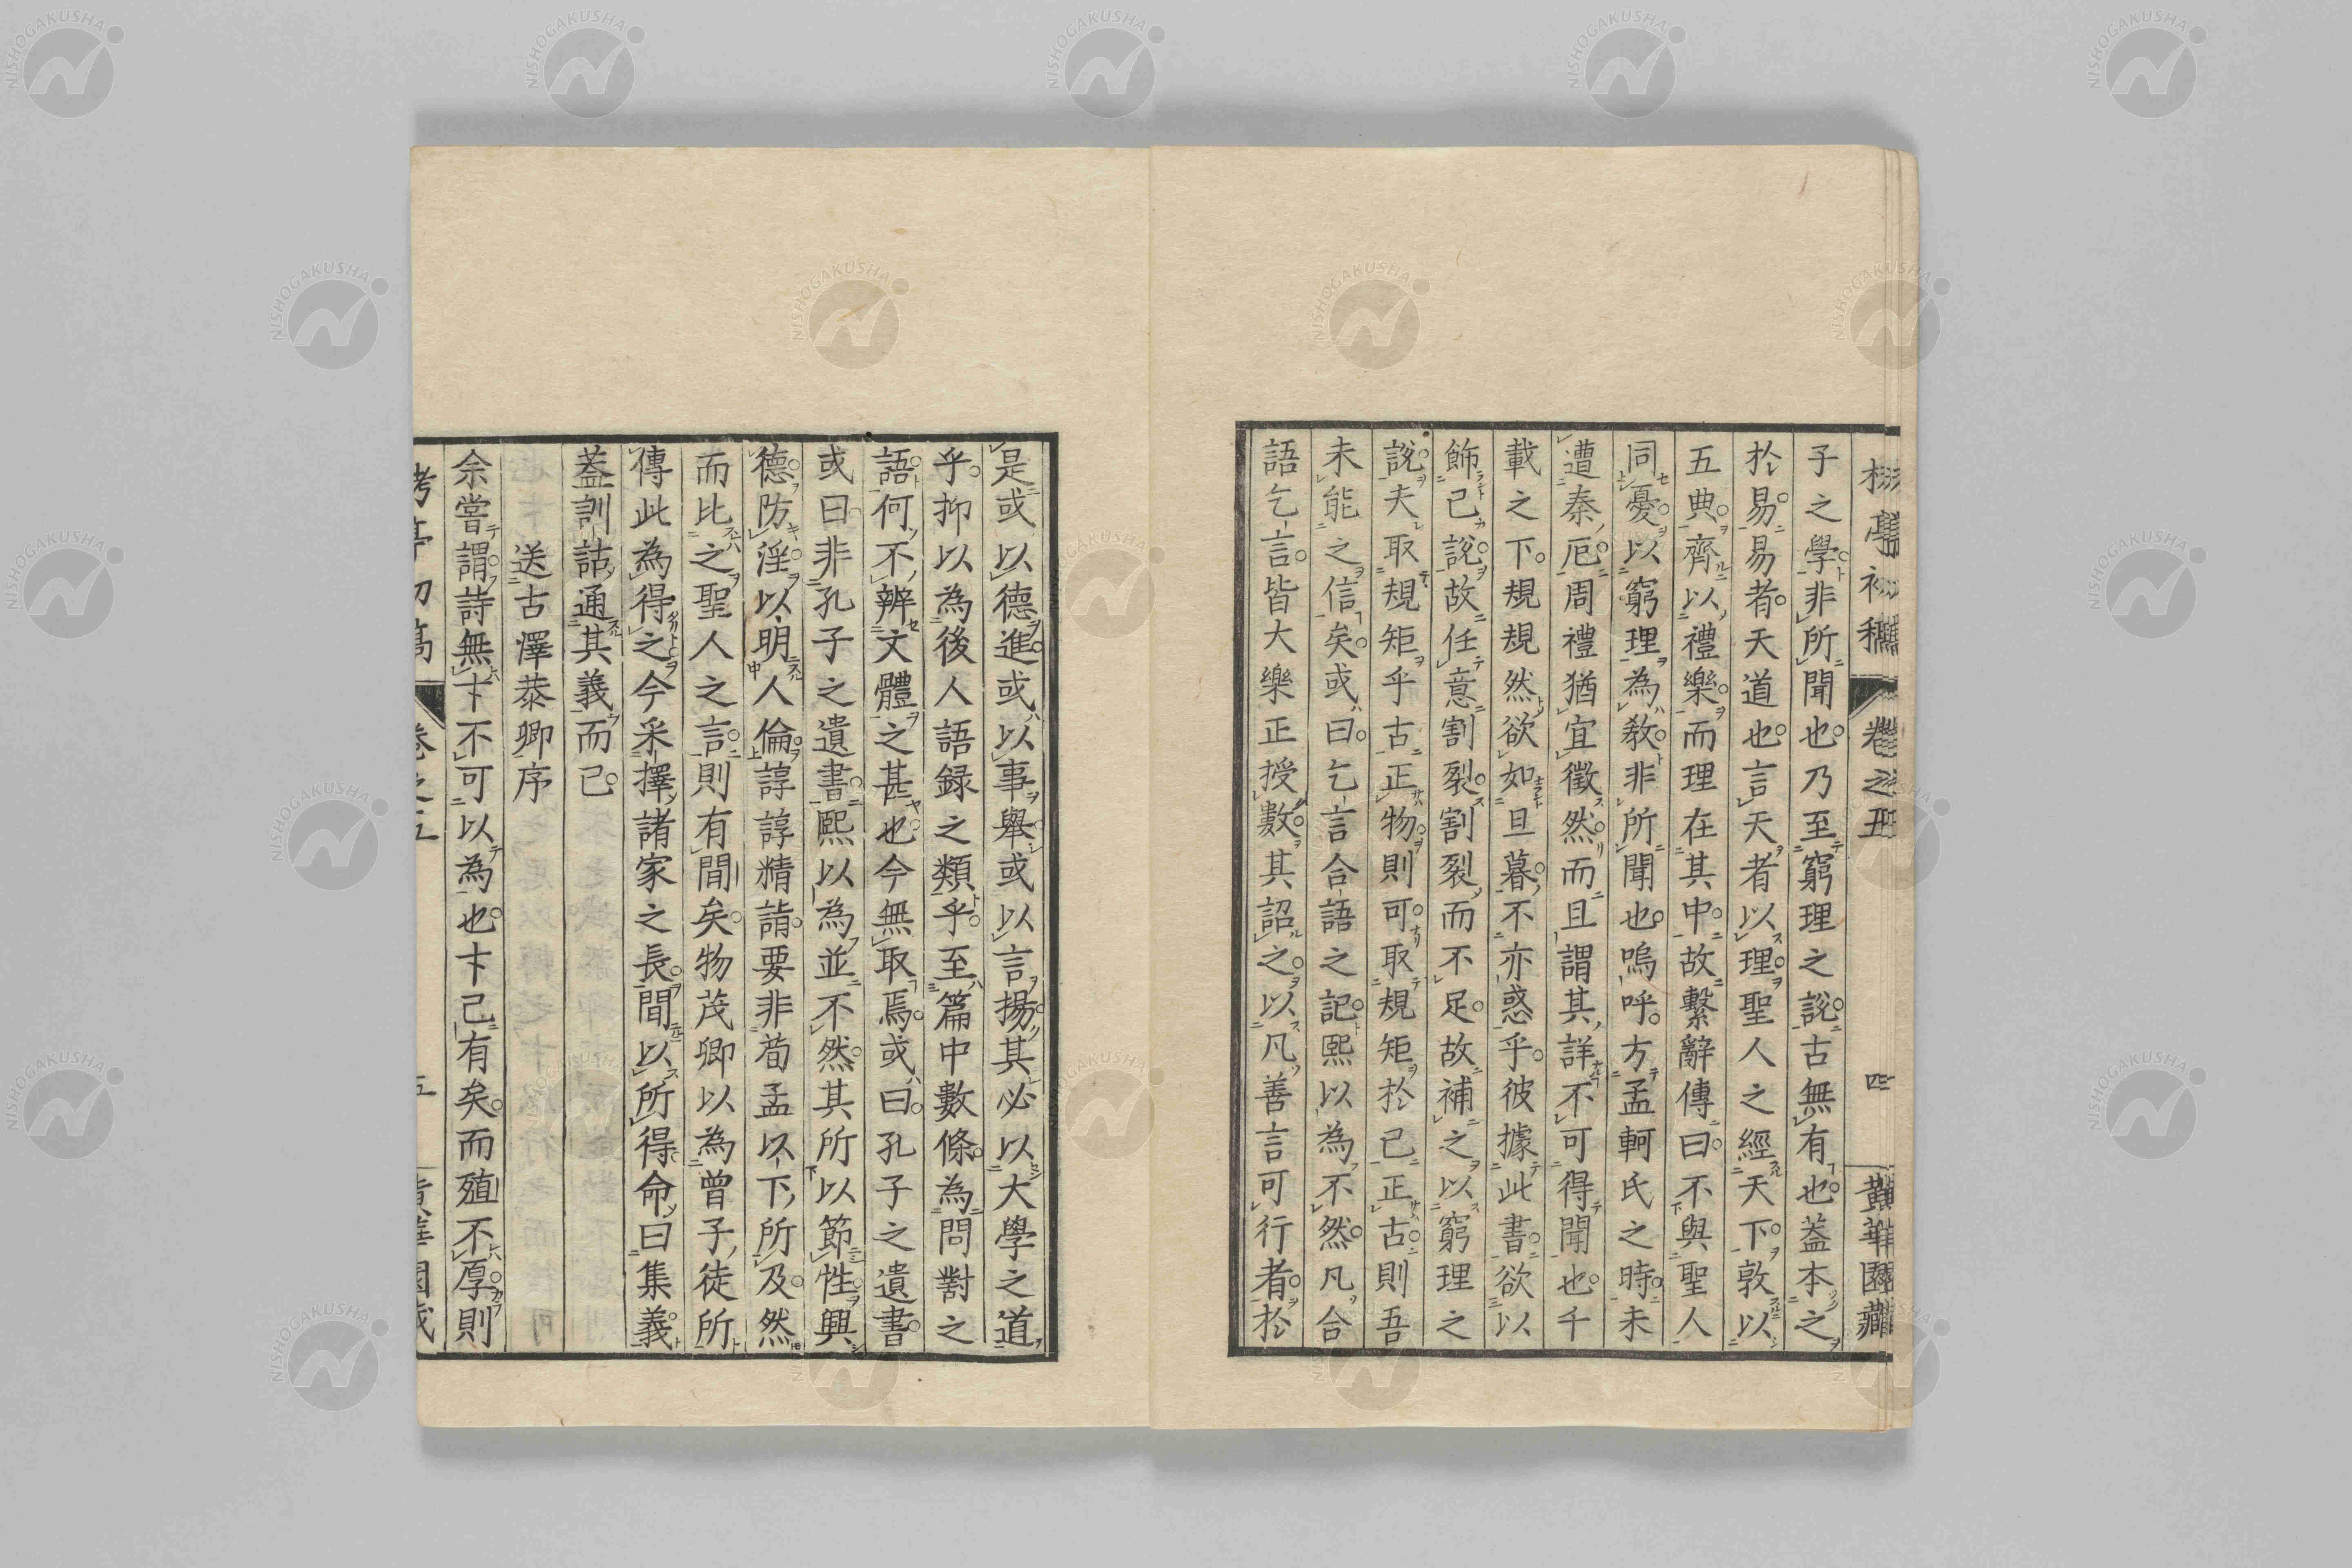 子之學非所聞也乃至窮理之說古無有也蓋本之
於易易者天道也言天者以理聖人之經天下敦以
五典齊以禮樂而理在其中故繫辭傳曰不與聖人
同憂以窮理為教非所聞也嗚呼方孟軻氏之時未
遭秦厄周禮猶宜徵然而且謂其詳不可得聞也千
載之下規規然欲如旦暮不亦惑乎彼據此書欲以
飾己說故任意割裂割裂而不足故補之以窮理之
說夫取規矩乎古正物則可取規矩於己正古則吾
未能之信矣或曰乞言合語之記熙以為不然凡合
語乞言皆大樂正授數其詔之以凡善言可行者於
卷之五
四
黃華園藏
是或以德進或以事舉或以言揚其必以大學之道
乎抑以為後人語録之類乎至篇中數條為問對之
語何不辨文體之甚也今無取焉或曰孔子之遺書
或曰非孔子之遺書熙以為並不然其所以節性興
德防淫以明人倫諄諄精詣要非荀孟以下所及然
而比之聖人之言則有間矣物茂卿以為曾子徒所
傳此為得之今采擇諸家之長間以所得命曰集義
蓋訓詁通其義而已
送古澤恭卿序
余嘗謂詩無卞不可以為也卞己有矣而殖不厚則
NISHOGAKUSHA